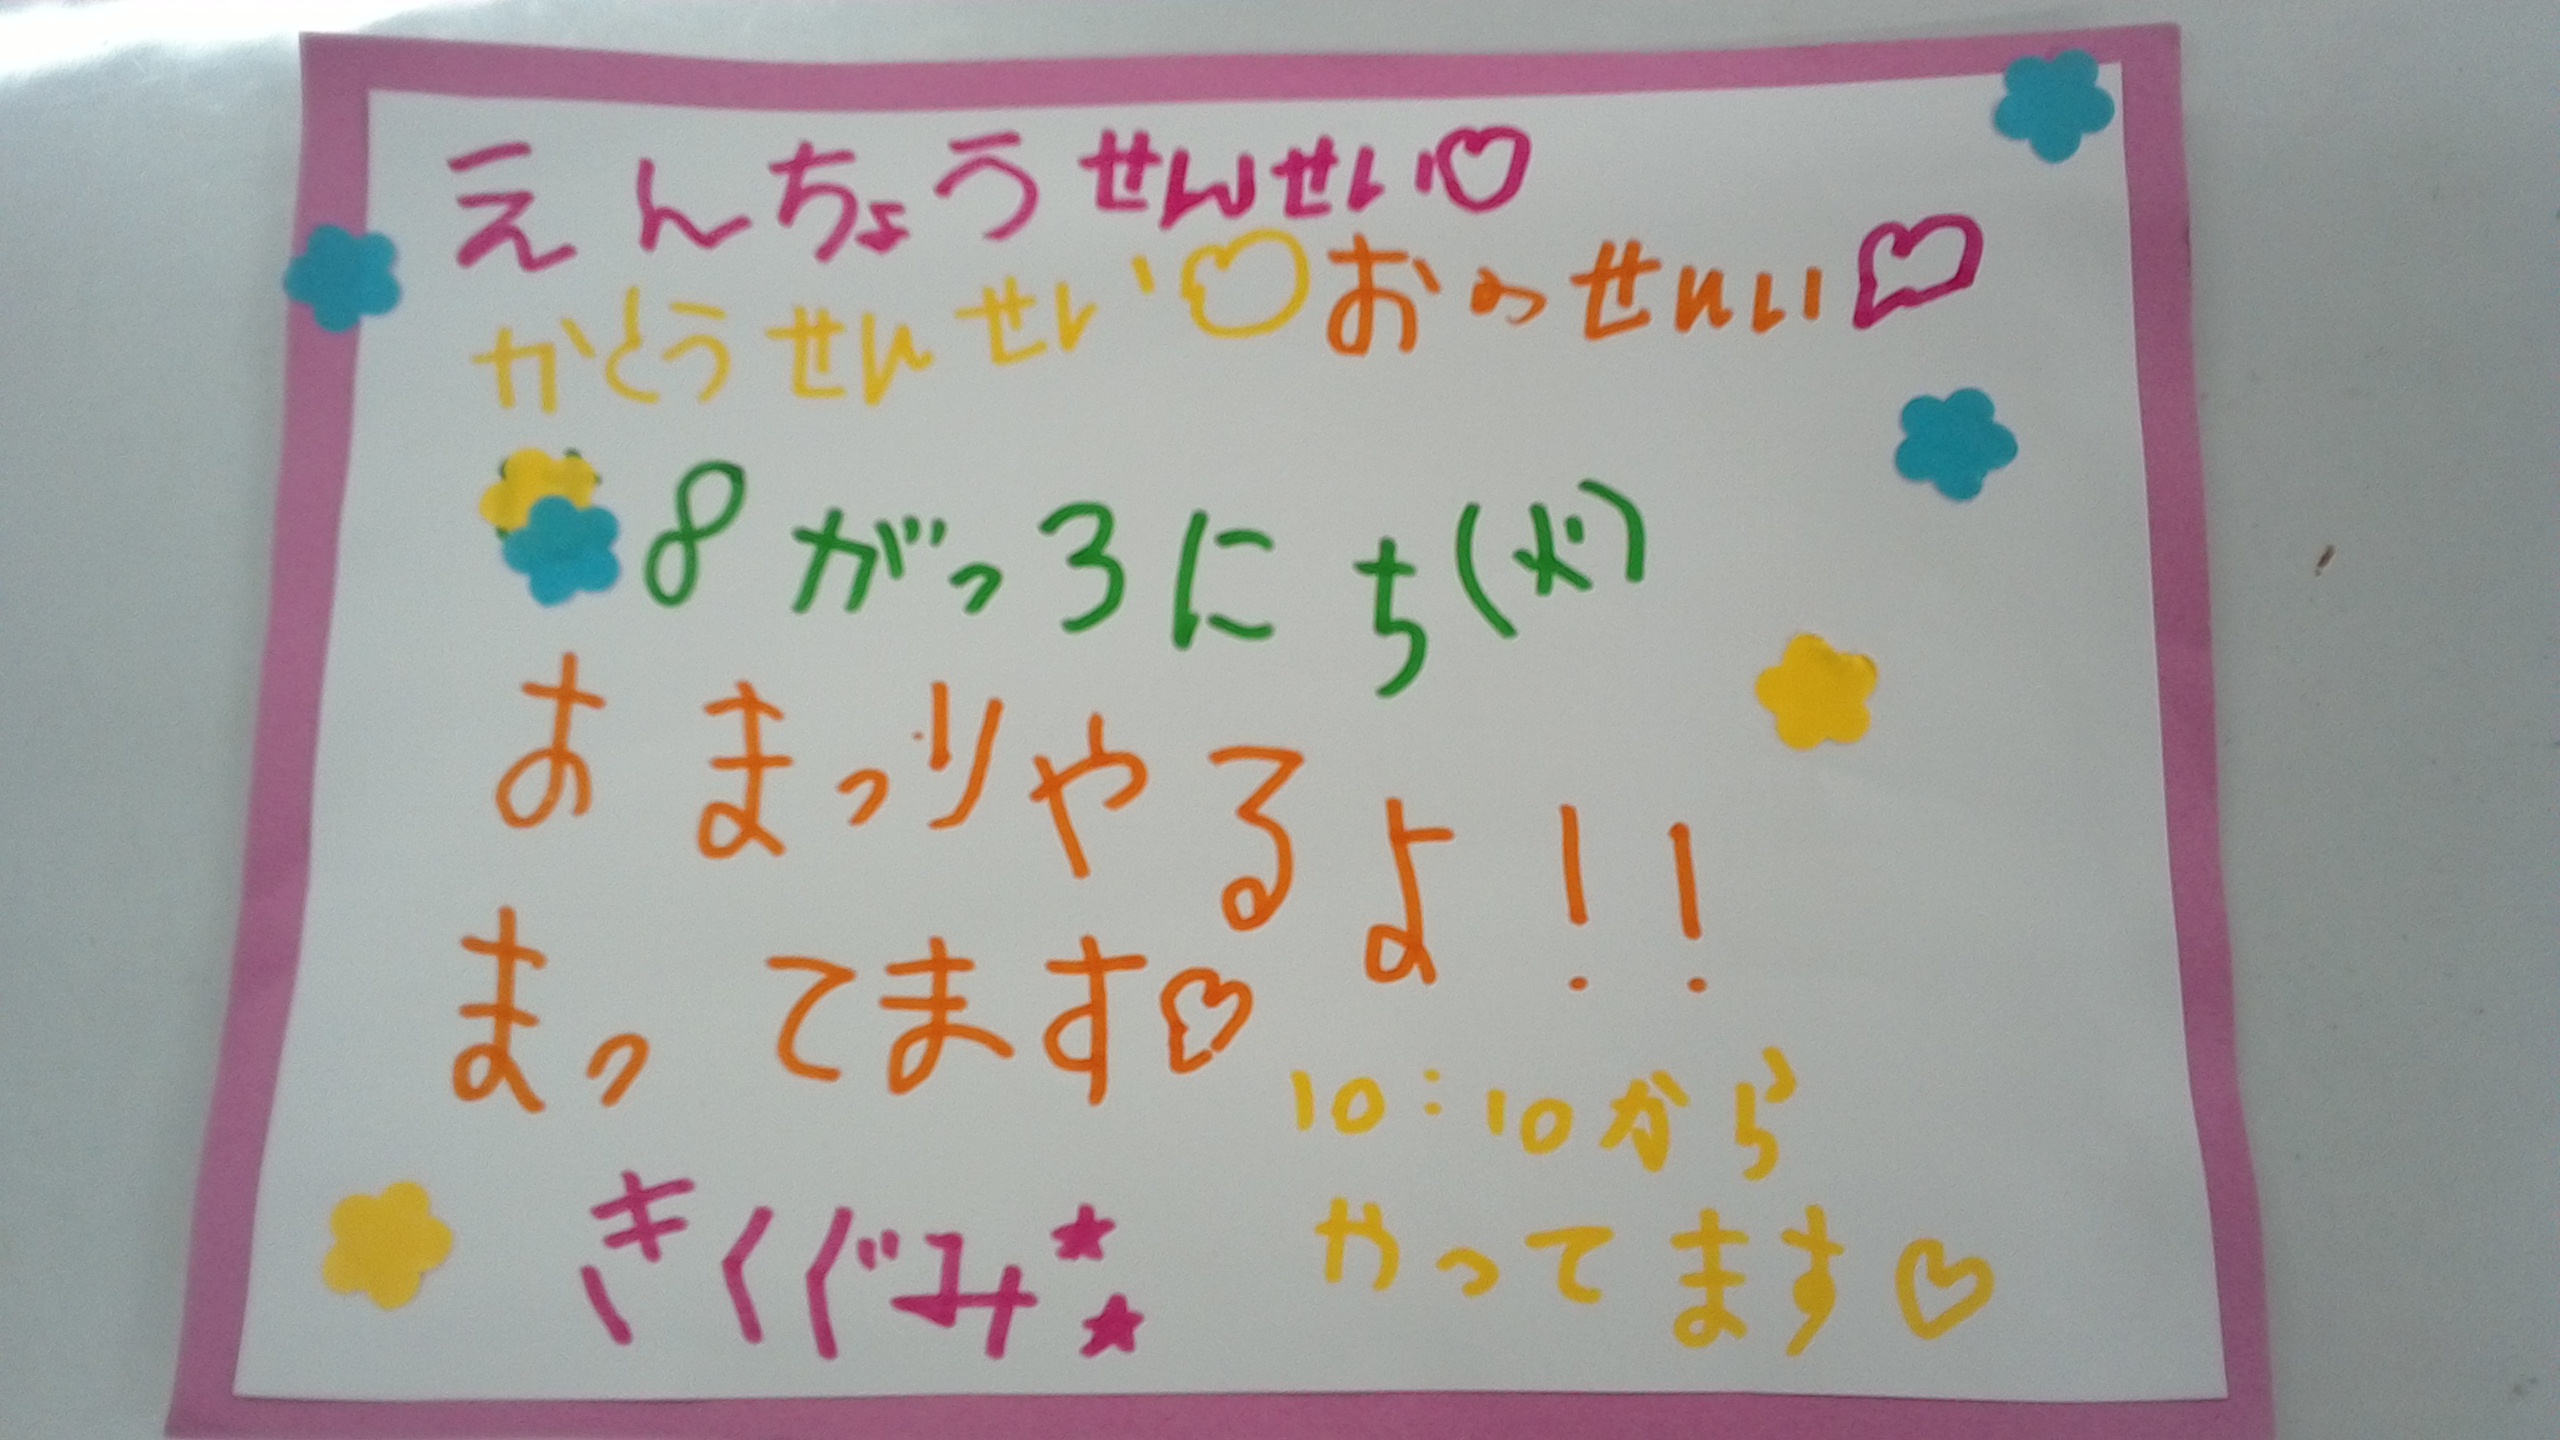 えんちょうせんせい♡
かとうせんせい♡おのせんせい♡
8がつ3にち(火)
おまつりやるよ!!
まってます♡
10:10から
やってます♡
きくぐみ★★